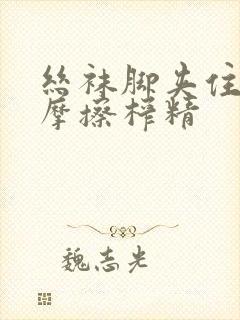 丝袜脚夹住
摩擦榨精
魏志光